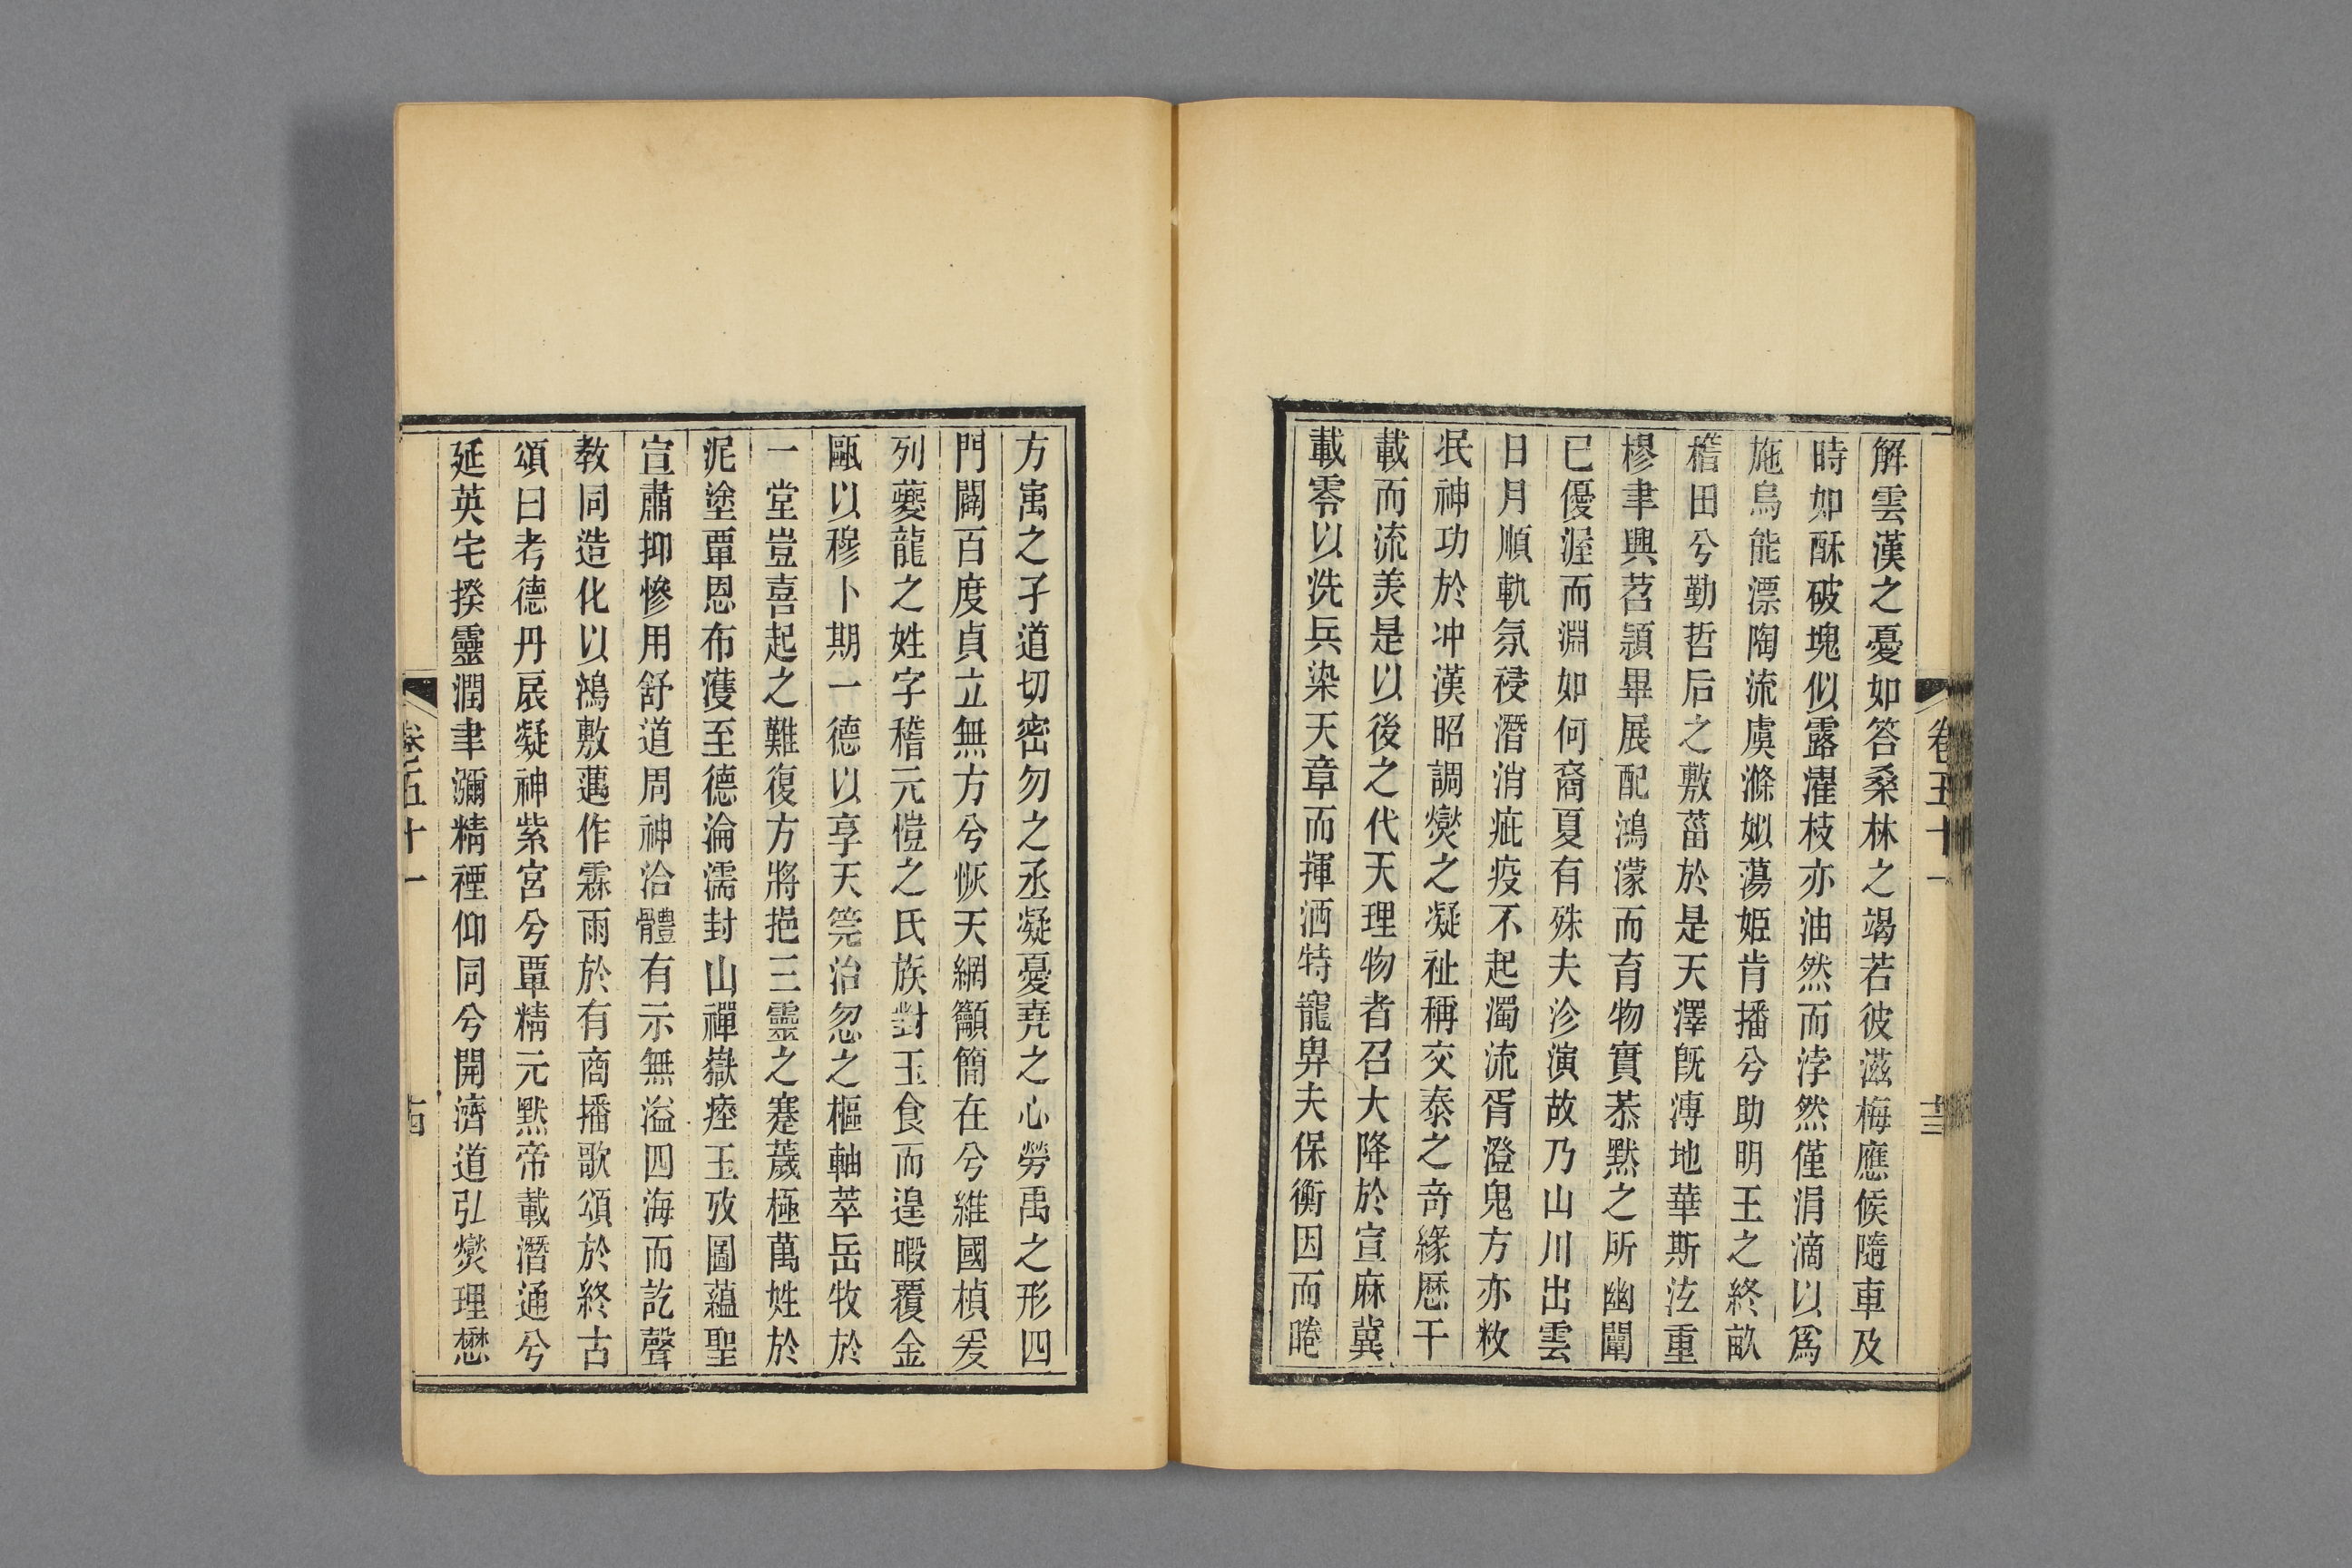 解雲漢之憂如答桑林之竭若彼滋梅應候隨車及
時如酥破塊似露濯枝亦油然而浡然僅涓滴以爲
施烏能漂陶流虞滌姒蕩姬肯播兮助明王之終畝
稽田兮勤哲后之敷菑於是天澤旣溥地華斯泫重
穋聿興苕穎畢展配鴻濛而育物實恭默之所幽闡
已優渥而淵如何裔夏有殊夫沴演故乃山川出雲
日月順軌氛祲潛消疵疫不起濁流胥澄鬼方亦敉
泯神功於冲漢昭調爕之凝祉稱交泰之奇緣厯千
載而流羙是以後之代天理物者召大降於宣麻冀
載零以洗兵染天章而揮洒特寵畀夫保衡因而睠
卷五十一
十三
方寓之孑道切密勿之丞凝憂堯之心勞禹之形四
門闢百度貞立無方兮恢天網籲簡在兮維國楨爰
列夔龍之姓字稽元愷之氏族對玉食而遑暇覆金
甌以穆卜期一德以享天筦治忽之樞軸萃岳牧於
一堂豈喜起之難復方將挹三靈之蹇薉極萬姓於
泥塗覃恩布濩至德淪濡封山禪嶽瘞玉攷圖蘊聖
宣肅抑慘用舒道周神洽體有示無溢四海而訖聲
教同造化以鴻敷邁作霖雨於有商播歌頌於終古
頌曰考德丹扆凝神紫宮兮覃精元默帝載潛通兮
延英宅揆靈潤聿瀰精禋仰同兮開濟道弘爕理懋
卷五十一
十四